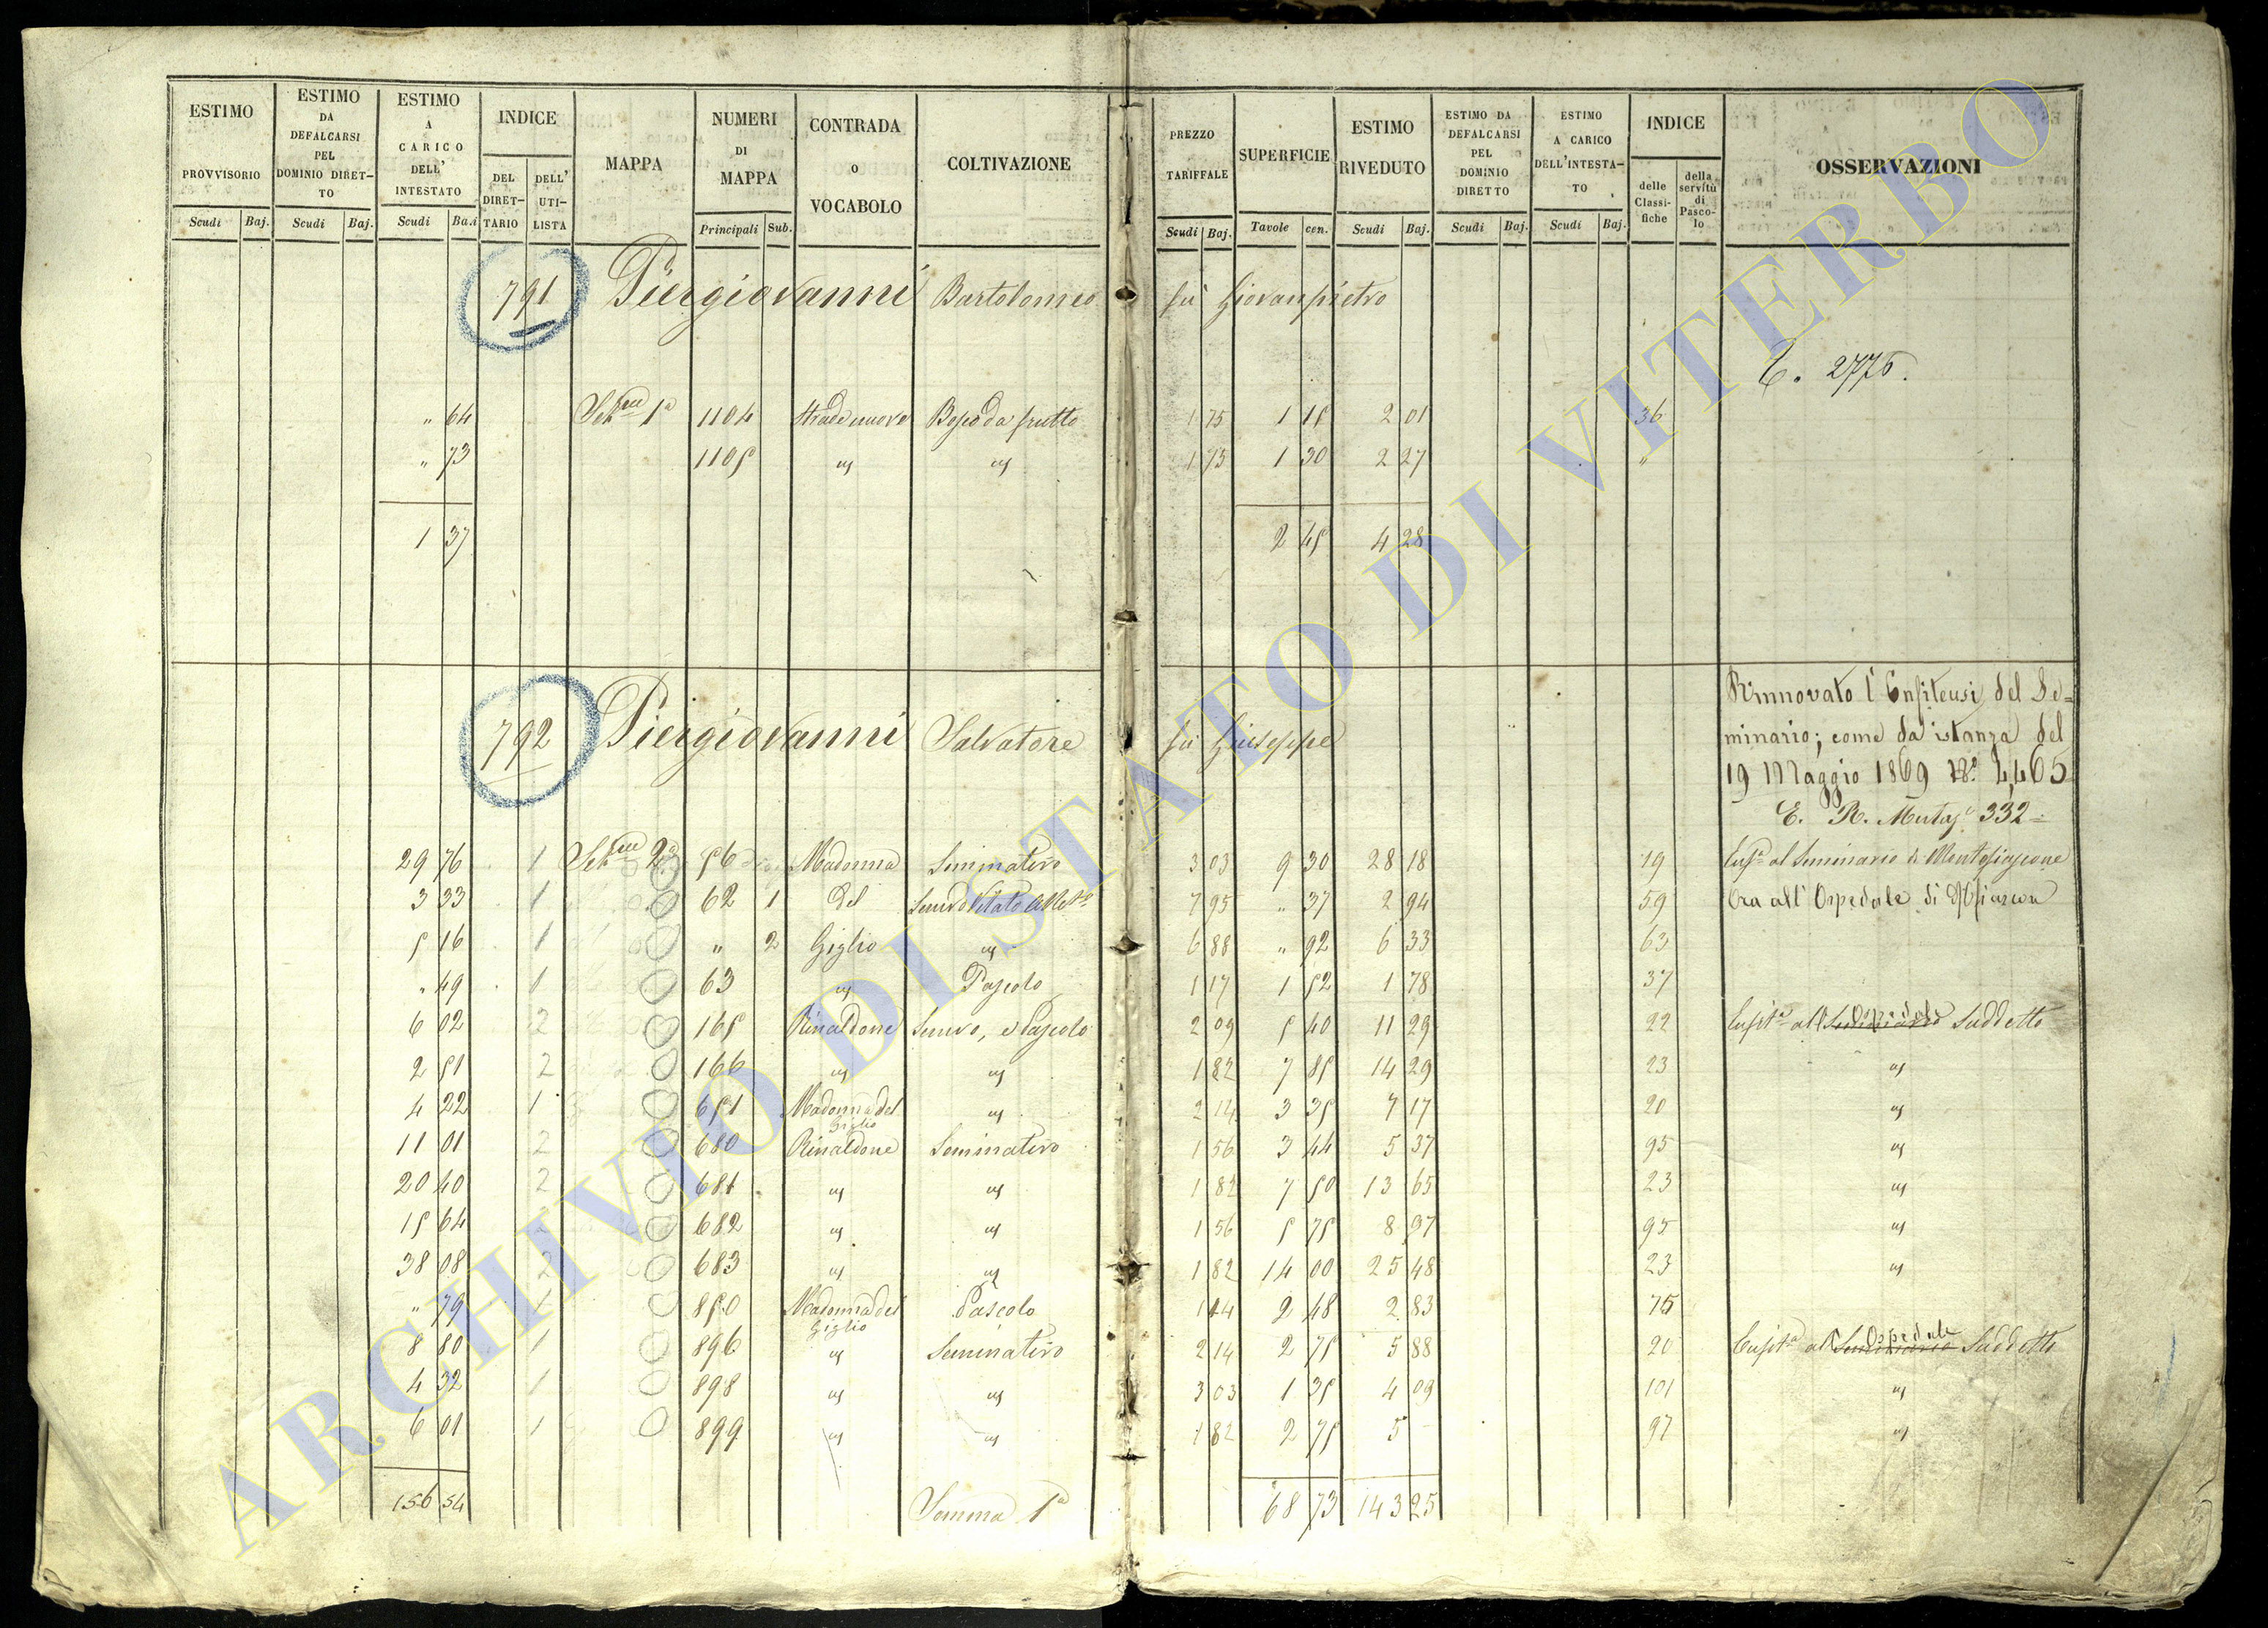 ESTIMO PROVVISORIO Scudi Baj.
ESTIMO DA DEFALCARSI PEL DOMINIO DIRET-TO Scudi Baj.
ESTIMO A CARICO DELL' INTESTATO Scudi Baj.
INDICE DEL DIRET-TARIO DELL' UTI-LISTA
MAPPA
NUMERI DI MAPPA Principali Sub.
CONTRADA o VOCABOLO
COLTIVAZIONE
PREZZO TARIFFALE Scudi Baj.
SUPERFICIE Tavole cen.
ESTIMO RIVEDUTO Scudi Baj.
ESTIMO DA DEFALCARSI PEL DOMINIO DIRETTO Scudi Baj.
ESTIMO A CARICO DELL'INTESTA-TO Scudi Baj.
INDICE delle Classi-fiche della servitù di Pasco-lo
OSSERVAZIONI
791 Piergiovanni Bartolomeo fu Giovanpietro
E. 2776.
" 64 Sez.ne 1ª 1104 Strade nuove Bosco da frutto 1 75 1 15 2 01 36
" 73 1105 " " 1 75 1 30 2 27 "
1 37 2 45 4 28
792 Piergiovanni Salvatore fu Giuseppe
Rinnovato l'Enfiteusi del Se=
minario; come da istanza del
19 Maggio 1869 N.° 4465
E. R. Mutaz. 332=
29 76 1 Sez.ne 2ª 56 Madonna Seminativo 3 03 9 30 28 18 19 Enf.ª al Seminario di Montefiascone
3 33 1 62 1 del Semvo Vitato 7 95 " 37 2 94 59 Ora all'Ospedale di
5 16 1 " 2 Giglio " 6 88 " 92 6 33 63
" 49 1 63 " Pascolo 1 17 1 52 1 78 37
6 02 2 165 Rinaldone Semvo, e Pascolo 2 09 5 40 11 29 22 Enfit.ª all'Ospedale Seminario Suddetto
2 51 2 166 " " 1 82 7 85 14 29 23 "
4 22 1 651 Madonna del Giglio " 2 14 3 35 7 17 20 "
11 01 2 680 Rinaldone Seminativo 1 56 3 44 5 37 95 "
20 40 2 681 " " 1 82 7 50 13 65 23 "
15 64 2 682 " " 1 56 5 75 8 97 95 "
38 08 2 683 " " 1 82 14 00 25 48 23 "
" 79 1 850 Madonna del Giglio Pascolo 1 14 2 48 2 83 75
8 80 1 896 " Seminativo 2 14 2 75 5 88 20 Enfit.ª all'Ospedale Seminario Suddetto
4 32 1 898 " " 3 03 1 35 4 09 101 "
6 01 1 899 " " 1 82 2 75 5 - 97 "
156 54 Somma 1ª 68 73 143 25
ARCHIVIO DI STATO DI VITERBO